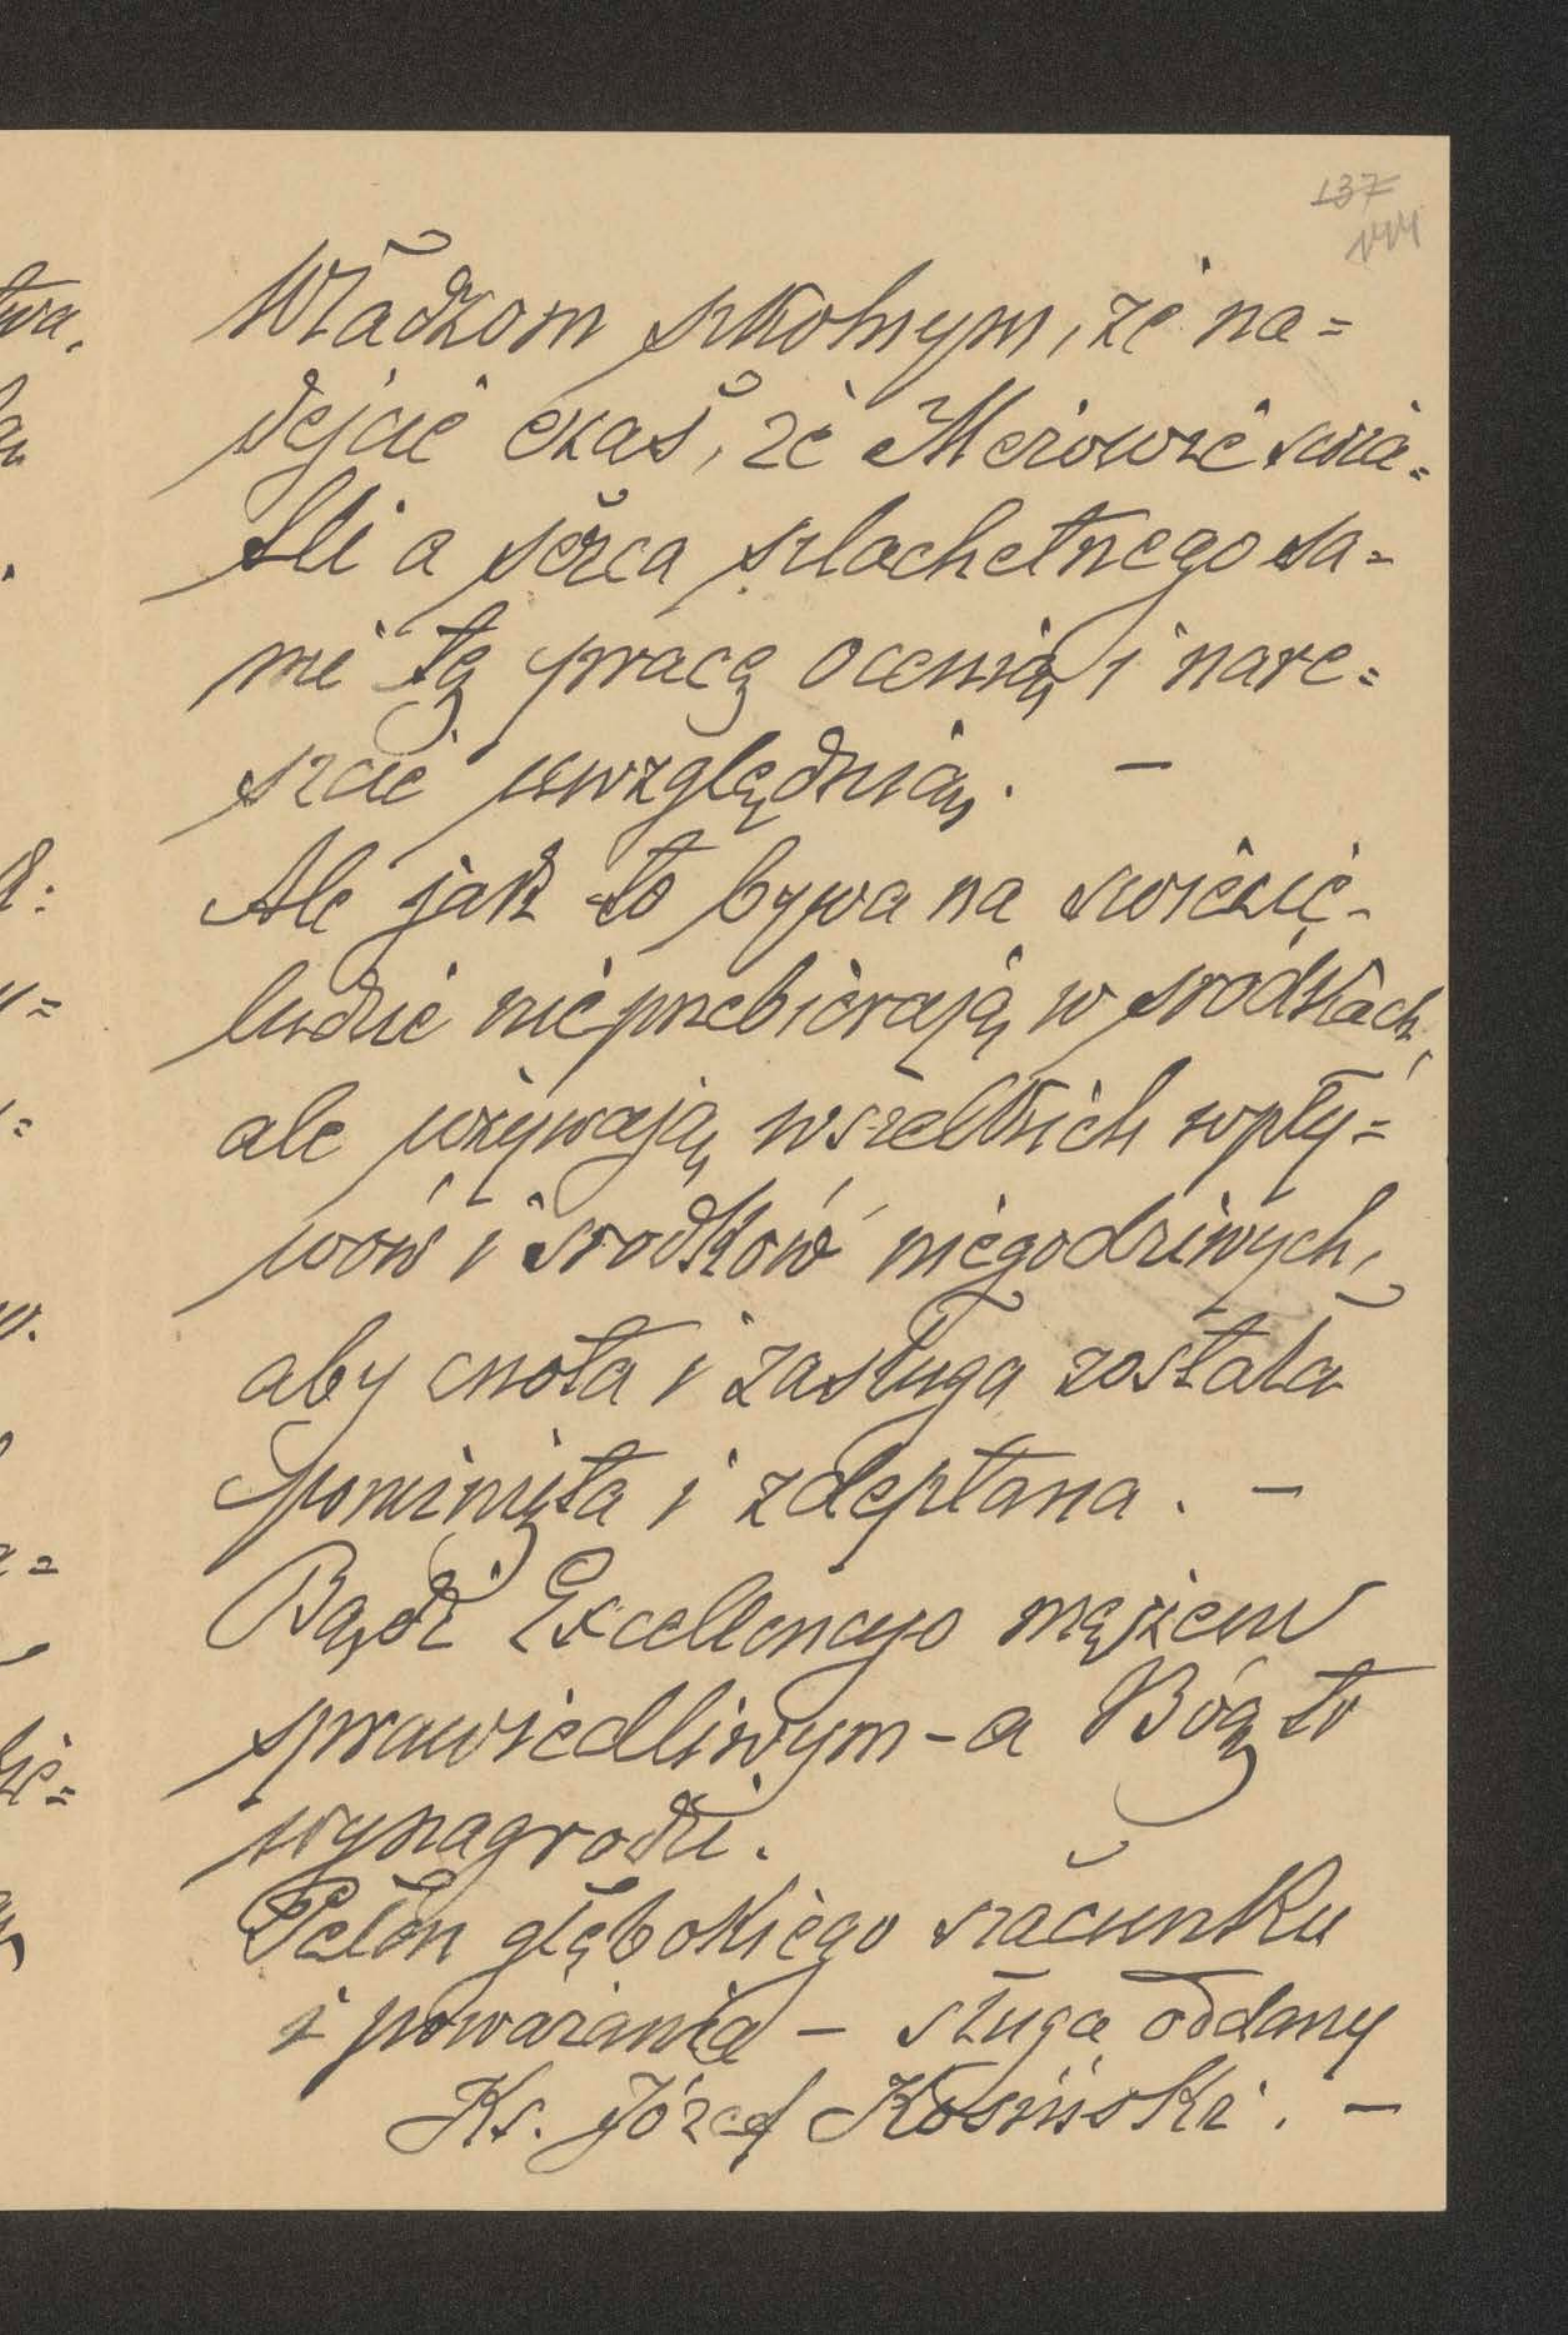 137
144
Władzom szkolnym, że na=
dejcie czas, że Mężowie świa=
tli a serca szlachetnego sa=
mi tę pracę ocenią i nare=
szcie uwzględnią. —
Ale jak to bywa na świecie -
ludzie nie przebierają w środkach,
ale używają wszelkich wpły=
wów i środków niegodziwych,
aby cnota i zasługa została
pominięta i zdeptana. —
Bądź Excellencyo mężem
sprawiedliwym - a Bóg to
wynagrodzi.
Pełen głębokiego szacunku
i poważania — sługa oddany
Ks. Józef Kosiński. —